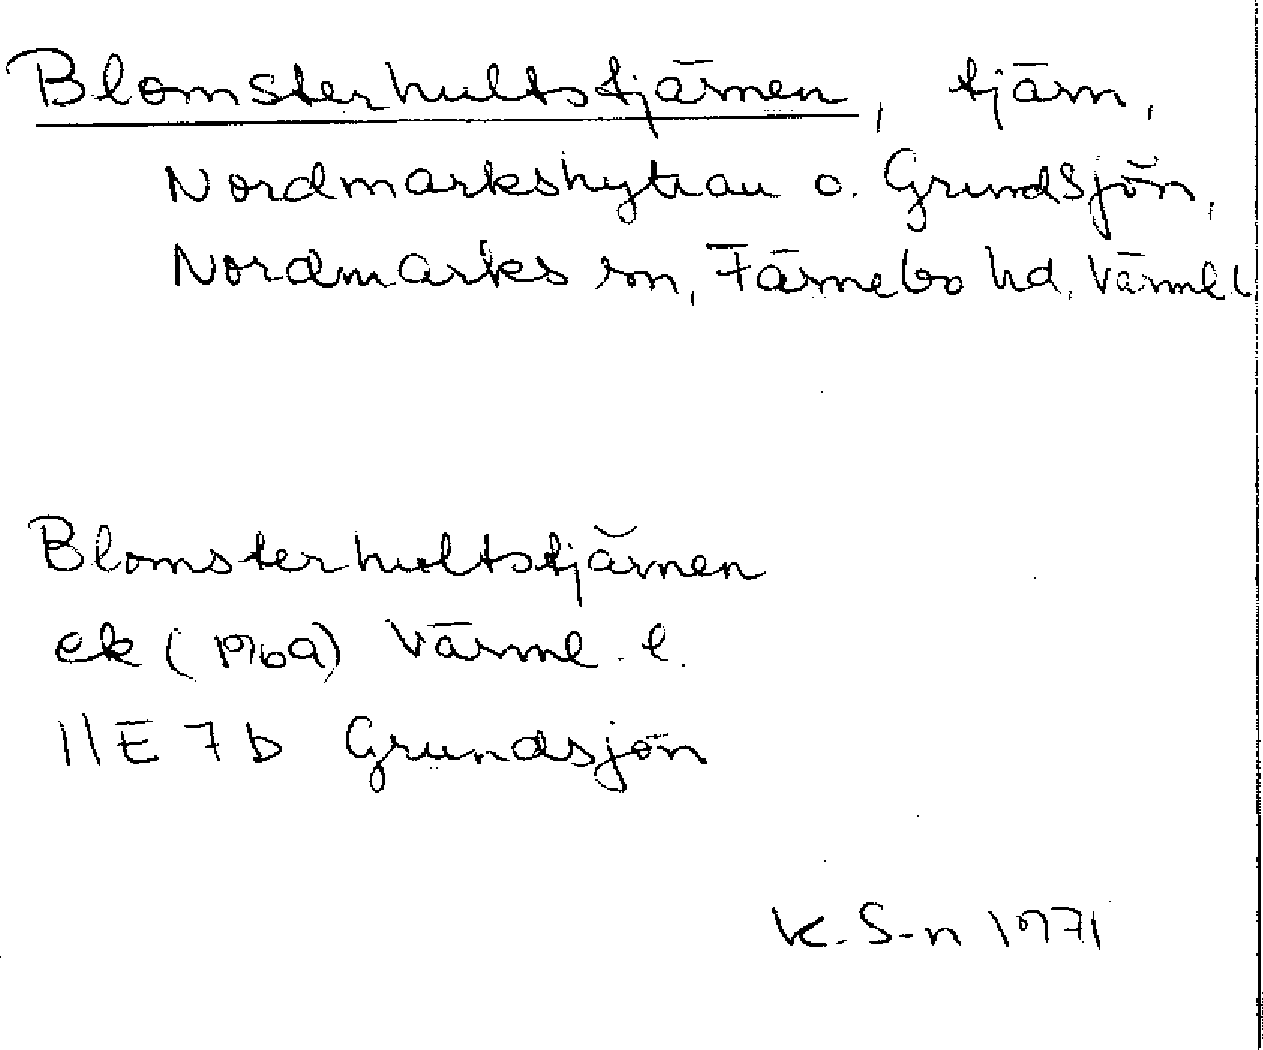 Blomsterhultstjärnen, tjärn,
Nordmarkshyttan o. Grundsjön,
Nordmarks sn, Färnebo hd, Värml. l
Blomsterhultstjärnen
ek (1969) Värml. l.
11E 7b Grundsjön
K. S-n 1971